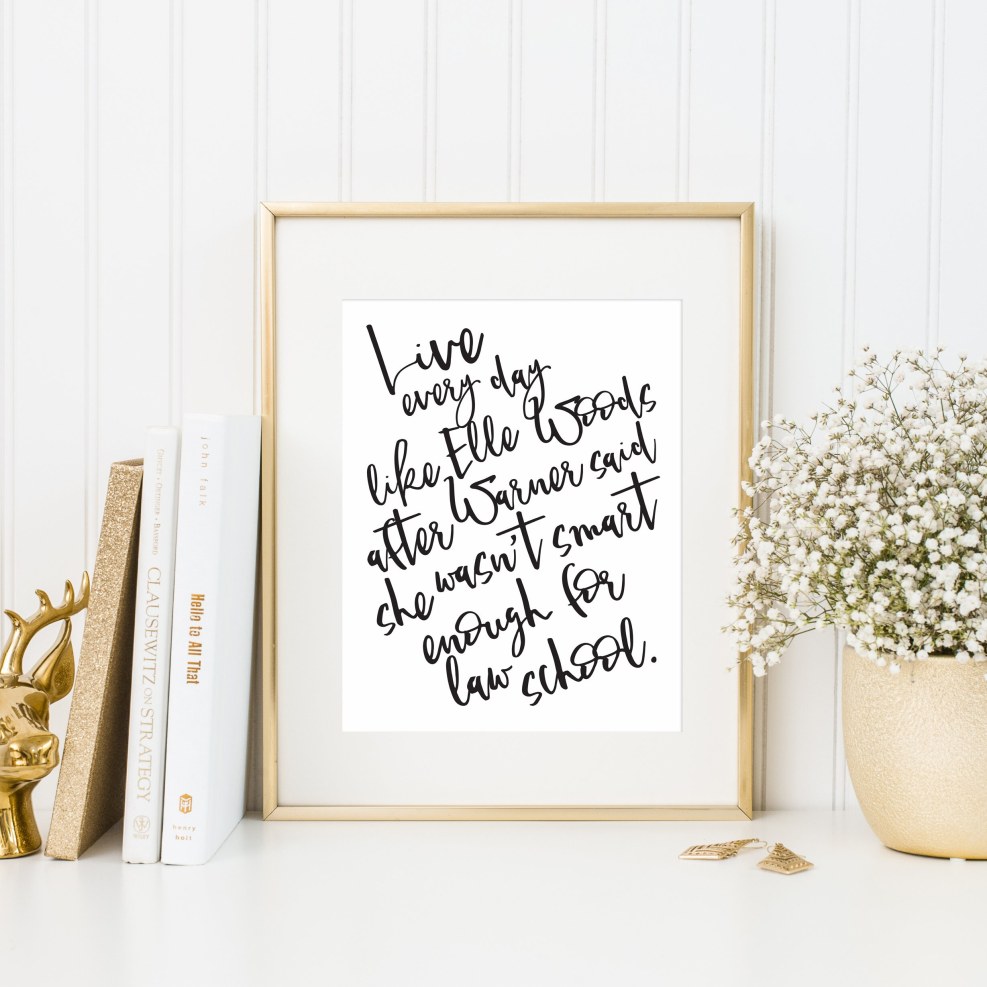 Live
every day
like Elle Woods
after Warner said
she wasn't smart
enough for
law school.
CLAUSEWITZ ON STRATEGY
WILEY
john falk
Hello to All That
henry
holt